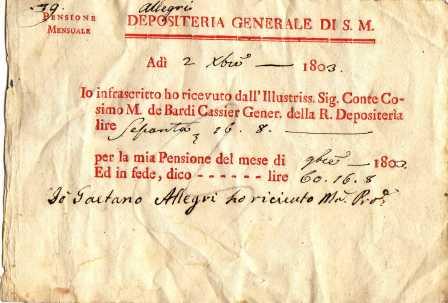 39. Allegri
PENSIONE
MENSUALE
DEPOSITERIA GENERALE DI S. M.
Adì 2 Xbre — 1803.
Io infrascritto ho ricevuto dall'Illustriss. Sig. Conte Co-
simo M. de Bardi Cassier Gener. della R. Depositeria
lire Sessanta, 16. 8.
per la mia Pensione del mese di 9bre — 1803
Ed in fede, dico - - - - - - lire 60. 16. 8
Io Gaetano Allegri ho riceiuto